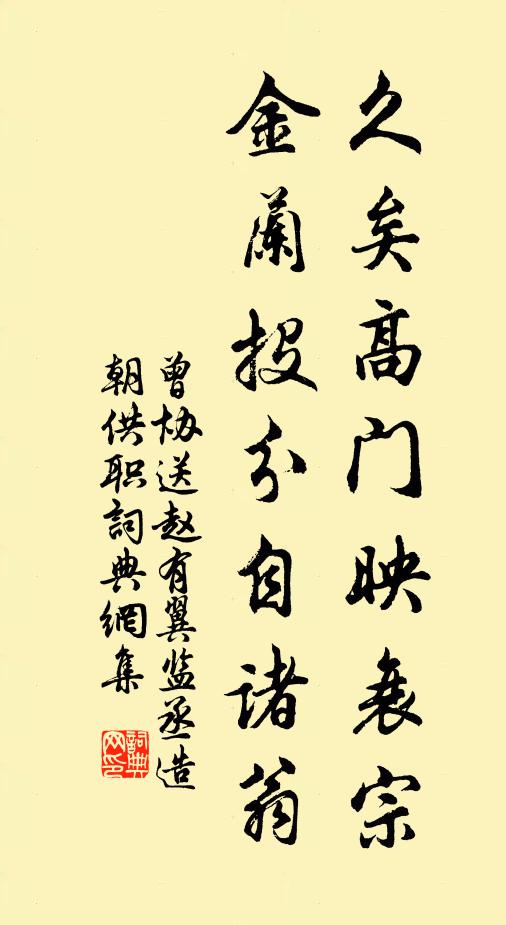 久矣高门映衰宗
金蘭投分自诸翁
曾协送赵有翼监丞造
朝供职詞典網集
詞典网印